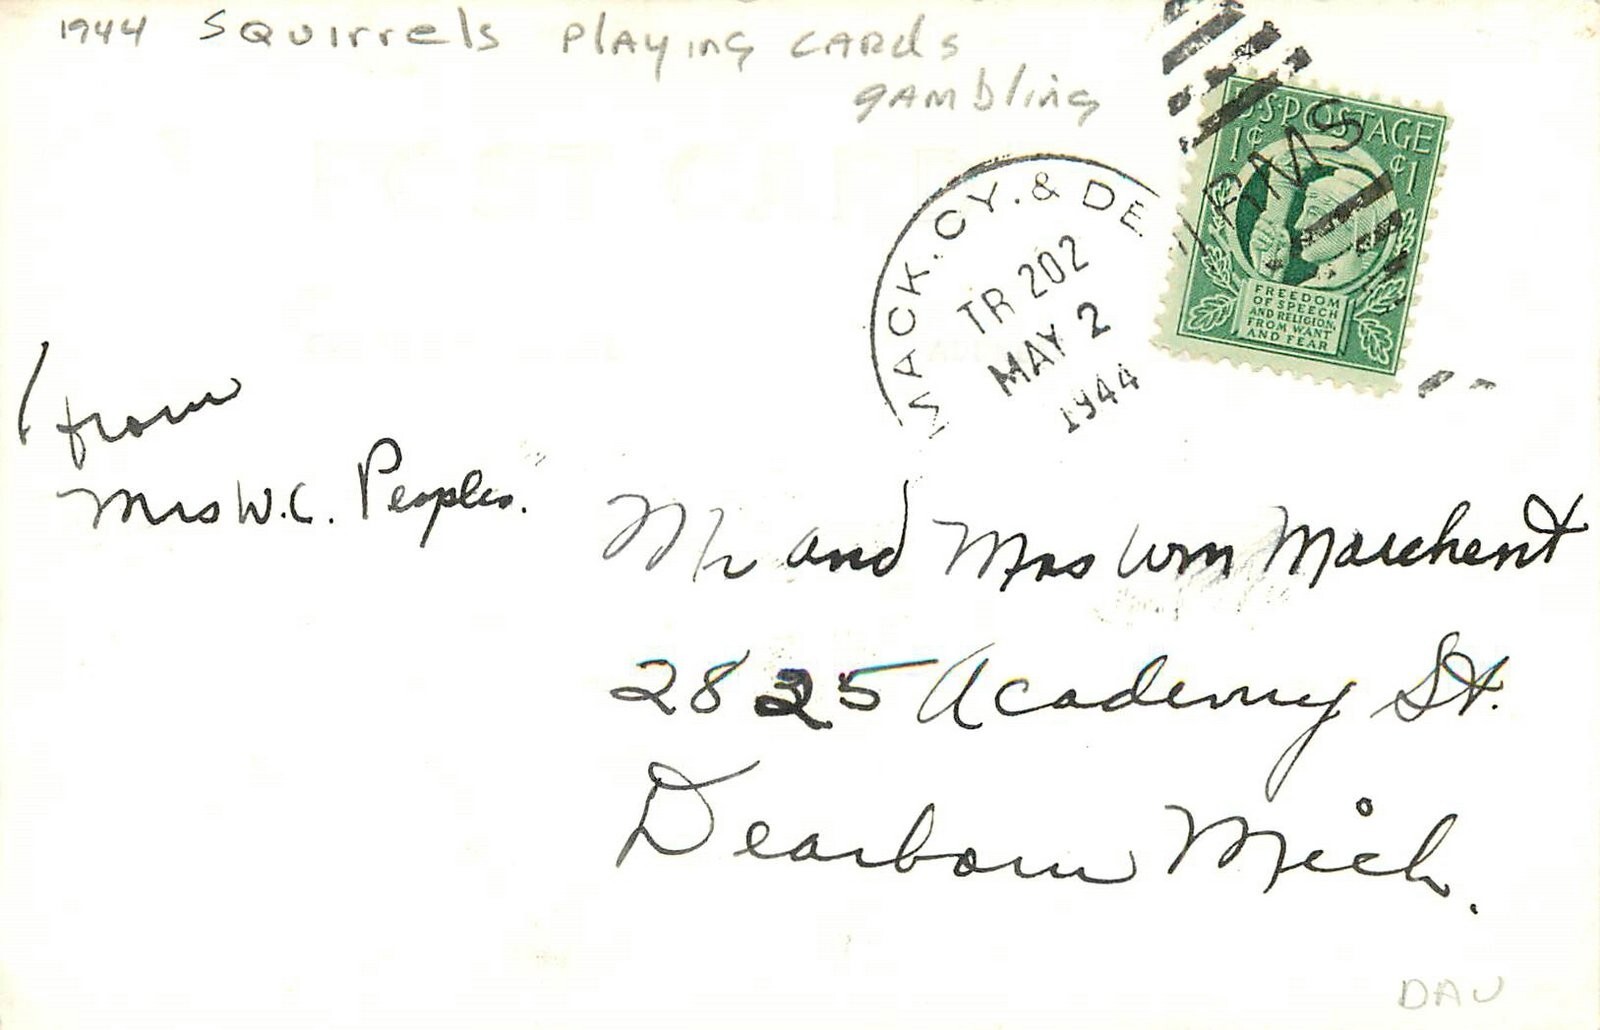 1944 Squirrels Playing Cards
gambling
MACK. CY. & DE
TR 202
MAY 2
1944
RMS
U.S. POSTAGE
1¢ ¢1
FREEDOM
OF SPEECH
AND RELIGION,
FROM WANT
AND FEAR
from
Mrs W.C. Peoples.
Mr and Mrs Wm Marchent
2825 Academy St.
Dearborn Mich.
DAU